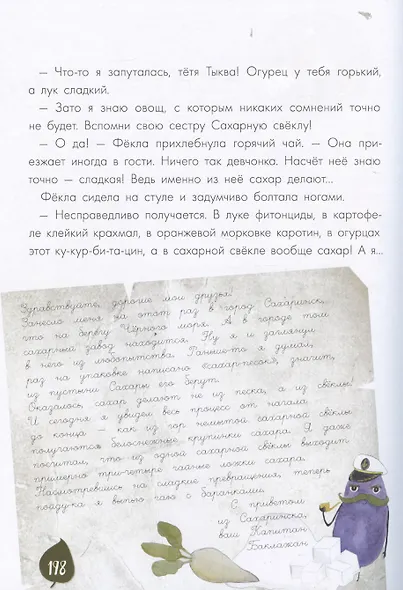 — Что-то я запуталась, тётя Тыква! Огурец у тебя горький,
а лук сладкий.
— Зато я знаю овощ, с которым никаких сомнений точно
не будет. Вспомни свою сестру Сахарную свёклу!
— О да! — Фёкла прихлебнула горячий чай. — Она при-
езжает иногда в гости. Ничего так девчонка. Насчёт неё знаю
точно — сладкая! Ведь именно из неё сахар делают...
Фёкла сидела на стуле и задумчиво болтала ногами.
— Несправедливо получается. В луке фитонциды, в картофе-
ле клейкий крахмал, в оранжевой морковке каротин, в огурцах
этот ку-кур-би-та-цин, а в сахарной свёкле вообще сахар! А я...
Здравствуйте, дорогие мои друзья!
Занесло меня на этот раз в город Сахаринск,
что на берегу Чёрного моря. А в городе том
сахарный завод находится. Ну я и заглянул
в него из любопытства. Раньше-то я думал,
раз на упаковке написано «сахар-песок», значит,
из пустыни Сахары его берут.
Оказалось, сахар делают не из песка, а из свёклы!
И сегодня я увидел весь процесс от начала
до конца — как из гор немытой сахарной свёклы
получаются белоснежные крупинки сахара. Я даже
посчитал, что из одной сахарной свёклы выходит
примерно три-четыре чайные ложки сахара.
Насмотревшись на сладкие превращения, теперь
пойду-ка я выпью чаю с баранками.
С приветом
из Сахаринска,
ваш Капитан
Баклажан
198